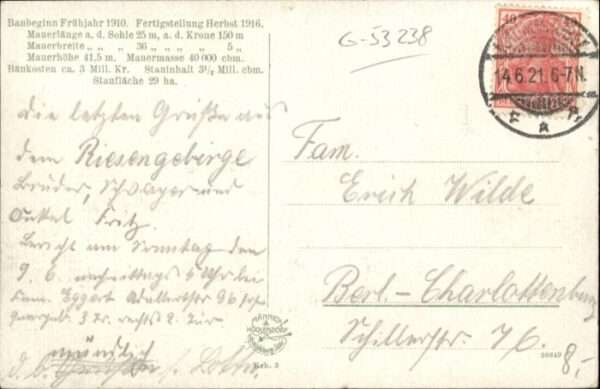 Baubeginn Frühjahr 1910. Fertigstellung Herbst 1916.
Mauerlänge a. d. Sohle 25 m, a. d. Krone 150 m
Mauerbreite „ „ „ 36 „ „ „ 5 „
Mauerhöhe 41,5 m. Mauermasse 40 000 cbm.
Baukosten ca. 3 Mill. Kr. Stauinhalt 3½ Mill. cbm.
Staufläche 29 ha.
G-53238
14.6.21.6-7N.
Die letzten Grüße aus
dem Riesengebirge
Bruder, Schwager und
Onkel Fritz.
Bericht am Sonntag den
9. 6. nachmittags 4 Uhr bei
Fam. Eggert
3 Tr. rechts 2. Tür
mündlich
Fam.
Erich Wilde
Berl.-Charlottenburg
Schillerstr. 76.
8,-